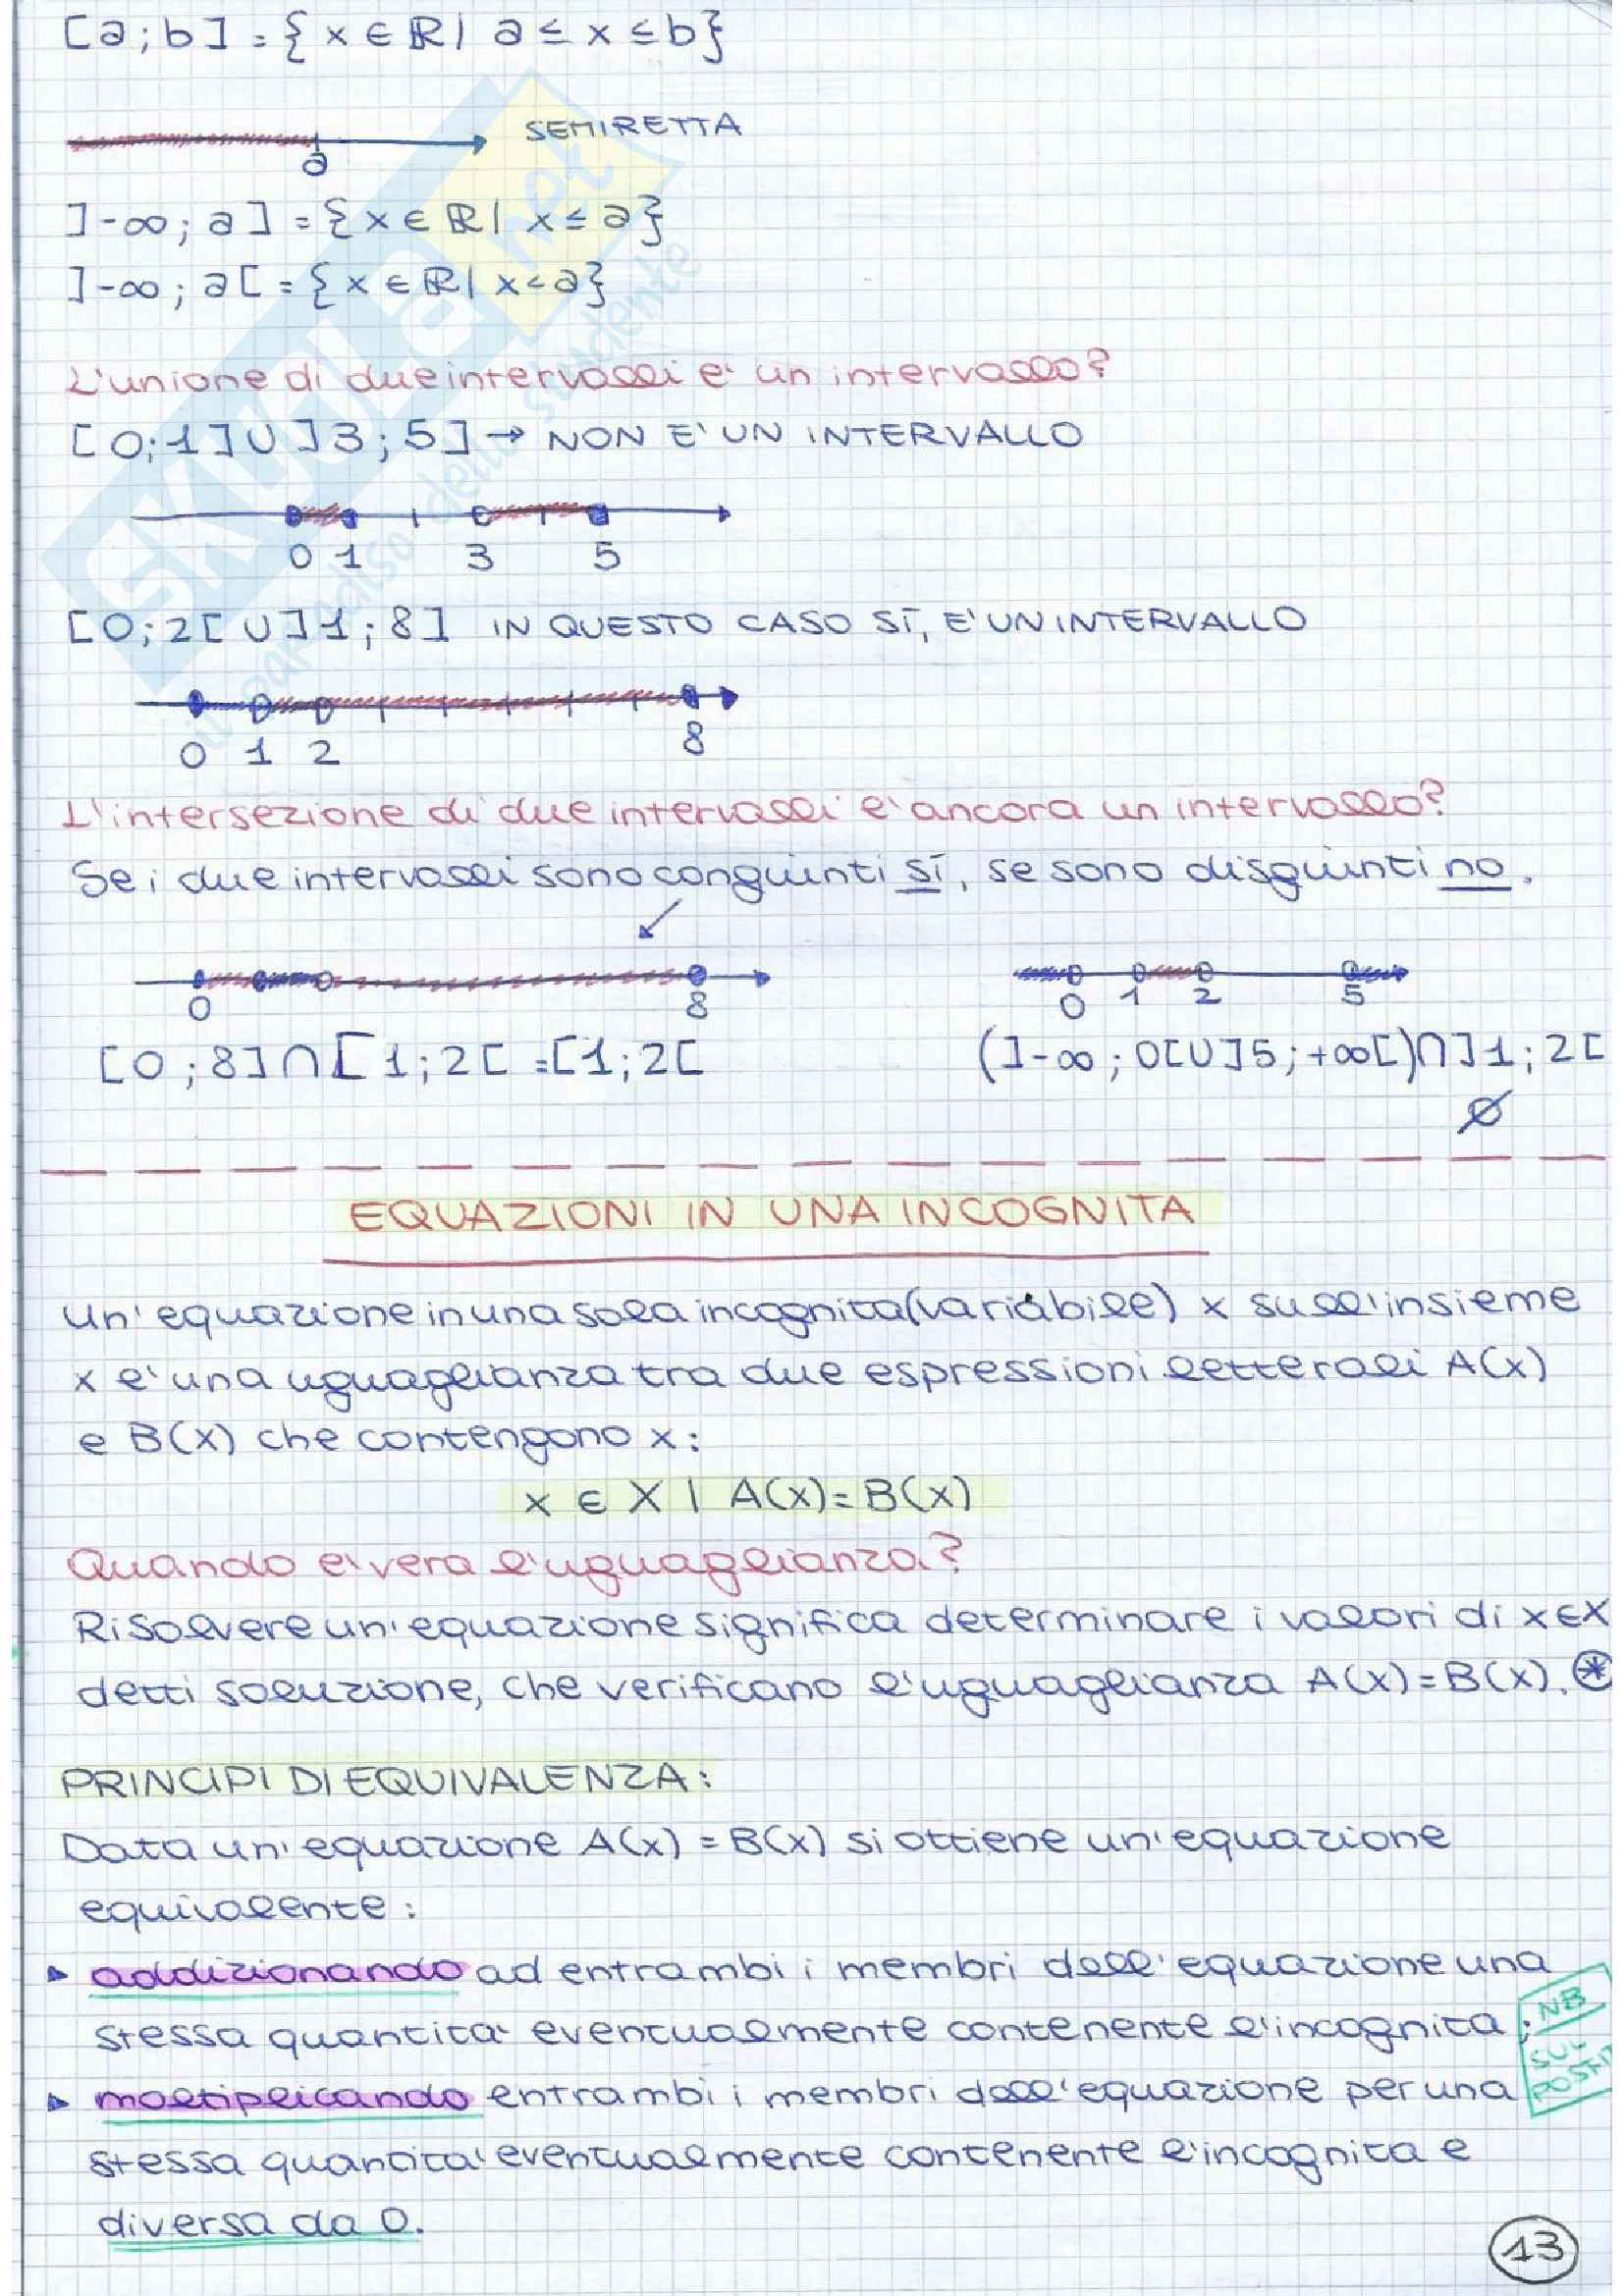 [a;b] = {x ∈ ℝ | a ≤ x ≤ b}
SEMIRETTA
a
]-∞; a] = {x ∈ ℝ | x ≤ a}
]-∞; a[ = {x ∈ ℝ | x < a}
L'unione di due intervalli e' un intervallo?
[0;1] ∪ ]3;5] → NON E' UN INTERVALLO
0 1 3 5
[0;2[ ∪ ]1;8] IN QUESTO CASO SÌ, E' UN INTERVALLO
0 1 2 8
L'intersezione di due intervalli e' ancora un intervallo?
Se i due intervalli sono conguinti sì, se sono disguinti no.
0 8 0 1 2 5
[0;8] ∩ [1;2[ = [1;2[ (]-∞;0[ ∪ ]5;+∞[) ∩ ]1;2[
∅
EQUAZIONI IN UNA INCOGNITA
Un'equazione in una sola incognita (variabile) x sull'insieme
x e' una uguaglianza tra due espressioni letterali A(x)
e B(x) che contengono x:
x ∈ X | A(x) = B(x)
Quando e' vera l'uguaglianza?
Risolvere un'equazione significa determinare i valori di x ∈ X
detti soluzione, che verificano l'uguaglianza A(x) = B(x). ⊛
PRINCIPI DI EQUIVALENZA:
Data un'equazione A(x) = B(x) si ottiene un'equazione
equivalente:
▸ addizionando ad entrambi i membri dell'equazione una
stessa quantita' eventualmente contenente l'incognita;
NB
SUL
POST-IT
▸ moltiplicando entrambi i membri dell'equazione per una
stessa quantita' eventualmente contenente l'incognita e
diversa da 0.
13
SKuola.net
il paradiso dello studente